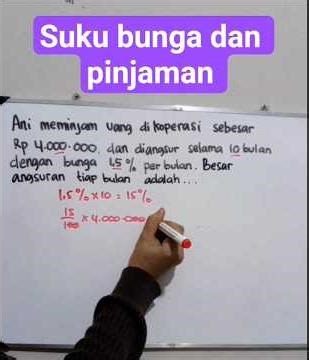 Suku bunga dan
pinjaman
Ani meminjam uang di koperasi sebesar
Rp 4.000.000, dan diangsur selama 10 bulan
dengan bunga 1,5 % per bulan. Besar
angsuran tiap bulan adalah ...
1,5% x 10 = 15%
15/100 x 4.000.000